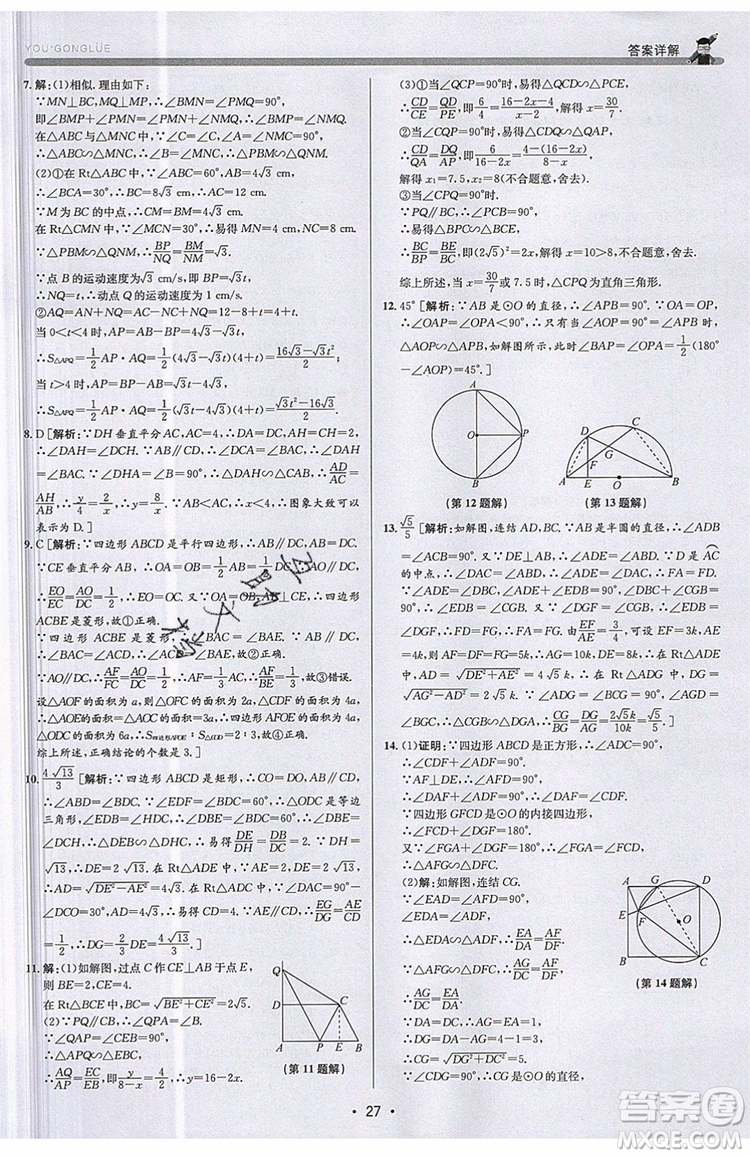 YOU·GONGLÜE
答案详解
7. 解:(1)相似. 理由如下:
∵MN⊥BC,MQ⊥MP,∴∠BMN=∠PMQ=90°.
∴∠BMP+∠PMN=∠PMN+∠NMQ.∴∠PMB=∠NMQ.
在△ABC与△MNC中,∵∠C=∠C,∠A=∠NMC=90°,
∴△ABC∽△MNC,∴∠B=∠MNC,∴△PBM∽△QNM.
(2)①在Rt△ABC中,∵∠ABC=30°,AB=4√3 cm,
∴∠BCA=30°,BC=8 cm,AC=4 cm.
∵M为BC的中点,∴CM=4 cm.
在Rt△CMN中,∵∠MCN=30°,∴MN=4√3 cm.
∵△PBM∽△QNM,∴BP/NQ=BM/NM=√3/3.
∵点B的运动速度为√3 cm/s,运动时间为t s,∴BP=√3t.
∴NQ=t,∴动点Q的运动速度为1 cm/s.
②AQ=AN+NQ=CN-AC+NQ=12-8+t=4+t.
当0<t<4时,AP=AB-BP=4√3-√3t=√3(4-t),
∴S△APQ=1/2AP·AQ=1/2(4√3-√3t)(4+t)=(16√3-√3t²)/2;
当t>4时,AP=BP-AB=√3t-4√3=√3(t-4),
∴S△APQ=1/2AP·AQ=1/2(√3t-4√3)(4+t)=(√3t²-16√3)/2.
8. D [解析:∵DH垂直平分AC,AC=4,∴DA=DC,AH=HC=2,
∴∠DAC=∠DCH.∵CD∥AB,∴∠DCA=∠BAC,∴∠DAH
=∠BAC.又∠DHA=∠B=90°,∴△DAH∽△CAB,∴AD/AC=
AH/AB,∴x/4=2/y,∴y=8/x.∵AB<AC,∴x<4,∴图象大致可以
表示为D.]
9. C [解析:∵四边形ABCD是平行四边形,∴AB∥DC,AB=DC.
∵CE垂直平分AB,∴OA=OB=1/2AB=1/2DC,CD⊥CE.∵OA∥DC,
∴EO/EC=AO/DC=1/2,∴EO=OC.又∵OA=OB,AB⊥CE,∴四边形
ACBE是菱形,故①正确.
∵四边形ACBE是菱形,∴∠BAC=∠BAE.∵AB∥DC,
∴∠BAC=∠DCA,∴∠DCA=∠BAE,故②正确.
∵AO∥DC,∴AF/FC=AO/DC=1/2,∴AF/AC=1/3,故③错误.
设△AOF的面积为a,则△OFC的面积为2a,△CDF的面积为4a,
∴△AOE的面积=△AOC的面积=3a,∴四边形AFOE的面积为4a,
∴S四边形AFOE:S△COD=2:3,故④正确.
综上所述,正确结论的个数是3.]
10. 4√13/3 [解析:∵四边形ABCD是矩形,∴∠BDC=∠EDF=
60°,∴∠BDF=∠EDC.∵∠BDC=60°,∴△ODC是等边
三角形,∠EDB=∠HDC,∴∠DBC=30°,∠DCH=30°,
∴∠DBE=∠DCH,∴△DEB∽△DHC,∴易得DE/DH=DB/DC=2.∵DH=
√13/2,∴DE=√13.在Rt△ADE中,∵DE=√13,AE=1,
∴AD=√(DE²-AE²)=√12.∵AE∥DC,∴EG/DG=AE/DC
=1/2,∴DG=2/3DE=4√13/3.]
11. 解:(1)如解图,过点C作CE⊥AB于点E,
则BE=2,CE=4.
在Rt△BCE中,BC=√(BE²+CE²)=2√5.
(2)∵PQ⊥CP,∴∠QPA+∠CPE=90°.
又∵∠QPA+∠PQA=90°,∴∠CPE=∠PQA.
又∵∠A=∠CEP=90°,∴△AQP∽△EPC,
∴AQ/PE=AP/EC,即y/(8-x-2)=x/4,∴y=16-2x.
Q
D
C
A
P
E
B
(第11题解)
(3)①当∠QCP=90°时,易得△QCD∽△PCE,
∴CD/CE=QD/PE,即6/4=(16-2x-4)/(x-2),解得x=30/7.
②当∠CQP=90°时,易得△CDQ∽△QAP,
∴CD/QA=DQ/AP,即6/(16-2x)=(16-2x-4)/(8-x),
解得x₁=7.5,x₂=8(不符合题意,舍去).
③当∠CPQ=90°时,
∵PQ∥PC,∴∠CPB=90°,
∴易得△BCP∽△BAC,
∴BC/BA=BP/BC,即(2√5)²=8x,解得x=10>8,不符合题意,舍去.
综上所述,当x=30/7或7.5时,△CPQ为直角三角形.
12. 45° [解析:∵AB是⊙O的直径,∴∠APB=90°.∵OA=OP,
∴∠OAP=∠OPA<90°.∵△ABP与△AOP相似,
△AOP如解图所示,∴∠AOP=∠APB=90°,∴∠A=1/2(180°
-∠AOP)=45°.]
A
O
P
B
(第12题解)
D
C
G
F
A
E
O
B
(第13题解)
13. √5/5 [解析:如解图,连结AD,BC.∵AB是半圆的直径,∴∠ADB
=∠ACB=90°.又∵DE⊥AB,∴∠ADE=∠ABD.又D是AC
的中点,∴∠DAC=∠ABD,∴∠ADE=∠DAC,∴FA=FD.
∵∠ADE=∠DBC,∠ADE+∠EDB=90°,∠DBC+∠CGB=
90°,∴∠EDB=∠CGB.又∵∠DGF=∠CGB,∴∠EDB=
∠DGF,∴DF=GF.∵EF/AF=3/5,∴设EF=3k,AF=DF=5k,则AE
=4k,∴DE=8k.在Rt△ADE中,AD=√(DE²+AE²)=
4√5k.∵AG=10k,∴在Rt△ADG中,DG=
√(AG²-AD²)=2√5k.∵∠ADG=∠BCG,∠AGD=
∠BGC,∴△ADG∽△BCG,∴CG/BG=DG/AG=2√5k/10k=√5/5.]
14. (1)证明:∵四边形ABCD是正方形,∴∠ADC=90°,
∴∠CDF+∠ADF=90°.
∵AF⊥DE,∴∠AFD=90°,
∴∠DAF+∠ADF=90°,∴∠DAF=∠CDF.
∵四边形GFCD是⊙O的内接四边形,
∴∠FCD+∠DGF=180°.
又∵∠FGA+∠DGF=180°,∴∠FGA=∠FCD,
∴△AFG∽△DFC.
(2)解:如解图,连结CG.
∵∠EAD=∠AFD=90°,
∠EDA=∠ADF,
∴△EDA∽△ADF,∴EA/AF=DA/DF,
∴EA/DA=AF/DF.∵△AFG∽△DFC,∴AG/DC=AF/DF,
∴AG/DC=EA/DA.
∵DA=DC,∴AG=EA=1,
∴DG=DA-AG=4-1=3,
∴CG=√(DG²+DC²)=5.
∵∠CDG=90°,∴CG是⊙O的直径,
A
G
D
E
F
O
B
C
(第14题解)
27
答案圈
MXQE.COM